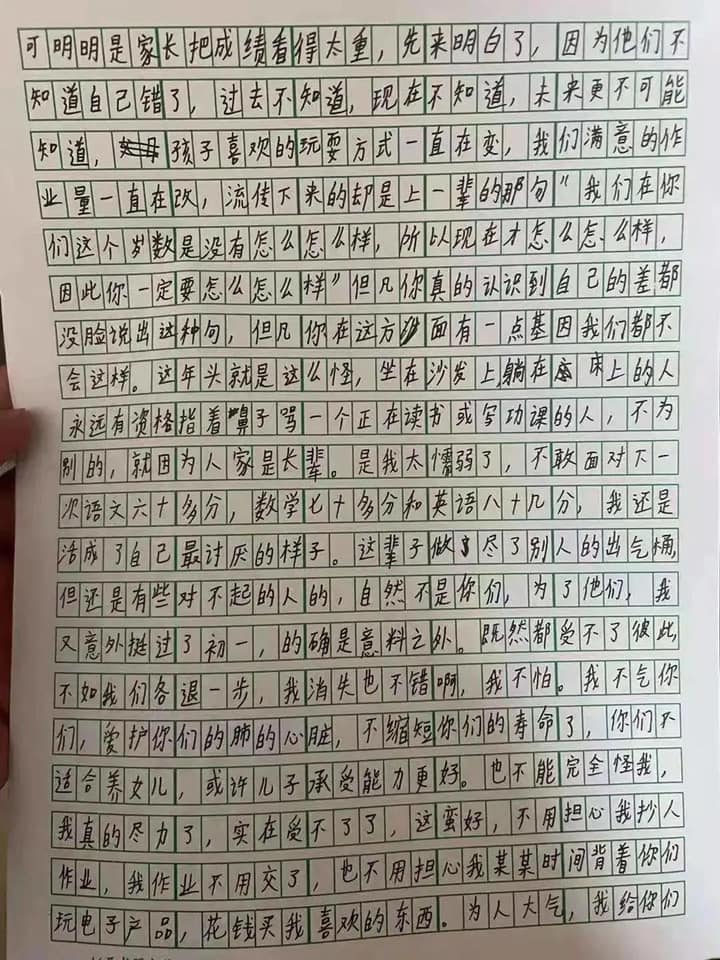 可明明是家长把成绩看得太重，先来明白了，因为他们不
知道自己错了，过去不知道，现在不知道，未来更不可能
知道，孩子喜欢的玩耍方式一直在变，我们满意的作
业量一直在改，流传下来的却是上一辈的那句“我们在你
们这个岁数是没有怎么怎么样，所以现在才怎么怎么样，
因此你一定要怎么怎么样”但凡你真的认识到自己的差都
没脸说出这种句，但凡你在这方面有一点基因我们都不
会这样。这年头就是这么怪，坐在沙发上躺在床上的人
永远有资格指着鼻子骂一个正在读书或写功课的人，不为
别的，就因为人家是长辈。是我太懦弱了，不敢面对下一
次语文六十多分，数学七十多分和英语八十几分，我还是
活成了自己最讨厌的样子。这辈子做尽了别人的出气桶，
但还是有些对不起的人的，自然不是你们，为了他们，我
又意外挺过了初一，的确是意料之外。既然都受不了彼此，
不如我们各退一步，我消失也不错啊，我不怕。我不气你
们，爱护你们的肺的心脏，不缩短你们的寿命了，你们不
适合养女儿，或许儿子承受能力更好。也不能完全怪我，
我真的尽力了，实在受不了了，这蛮好，不用担心我抄人
作业，我作业不用交了，也不用担心我某某时间背着你们
玩电子产品，花钱买我喜欢的东西。为人大气，我给你们